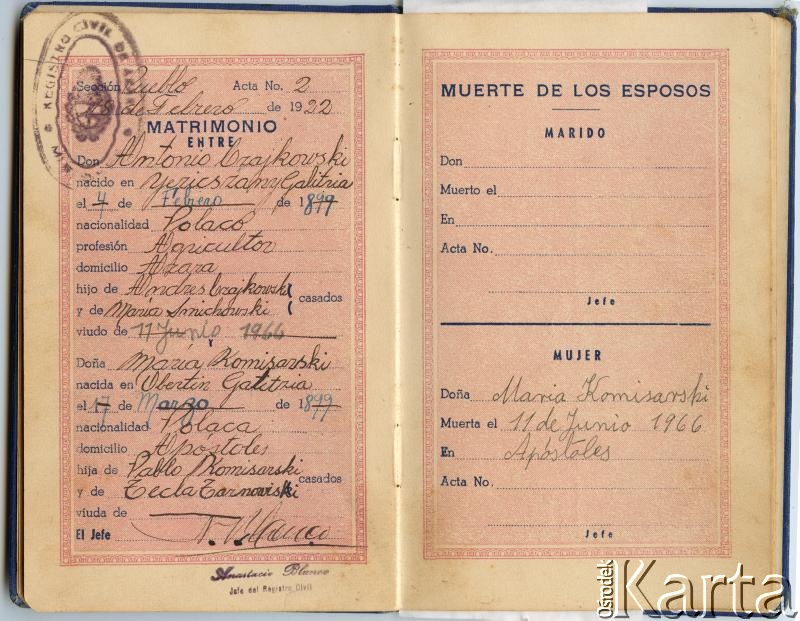 REGISTRO CIVIL DE
Sección Pueblo Acta No. 2
28 de Febrero de 1922
MATRIMONIO
ENTRE
Don Antonio Czajkowski
nacido en Yeziezany Galitzia
el 4 de Febrero de 1899
nacionalidad Polaco
profesión Agricultor
domicilio Azara
hijo de Andres Czajkowski
y de María Smichowski casados
viudo de 11 Junio 1966
Doña María Komisarski
nacida en Obertin Galitzia
el 17 de Marzo de 1899
nacionalidad Polaca
domicilio Apóstoles
hija de Pablo Komisarski
y de Tecla Tarnowiski casados
viuda de
El Jefe
Anastacio Blanco
Jefe del Registro Civil
MUERTE DE LOS ESPOSOS
MARIDO
Don
Muerto el
En
Acta No.
Jefe
MUJER
Doña Maria Komisarski
Muerta el 11 de Junio 1966
En Apóstoles
Acta No.
Jefe
Ośrodek Karta